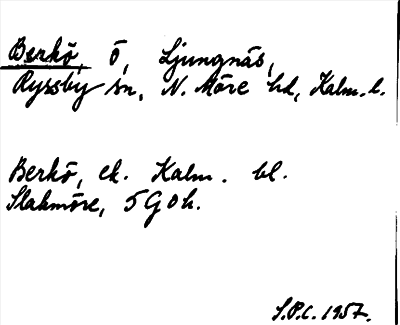 Berkö, ö, Ljungnäs,
Ryssby sn, N. Möre hd, Kalm. l.
Berkö, ek. Kalm. bl.
Slakmöre, 5 G o h.
S.P.C. 1957.